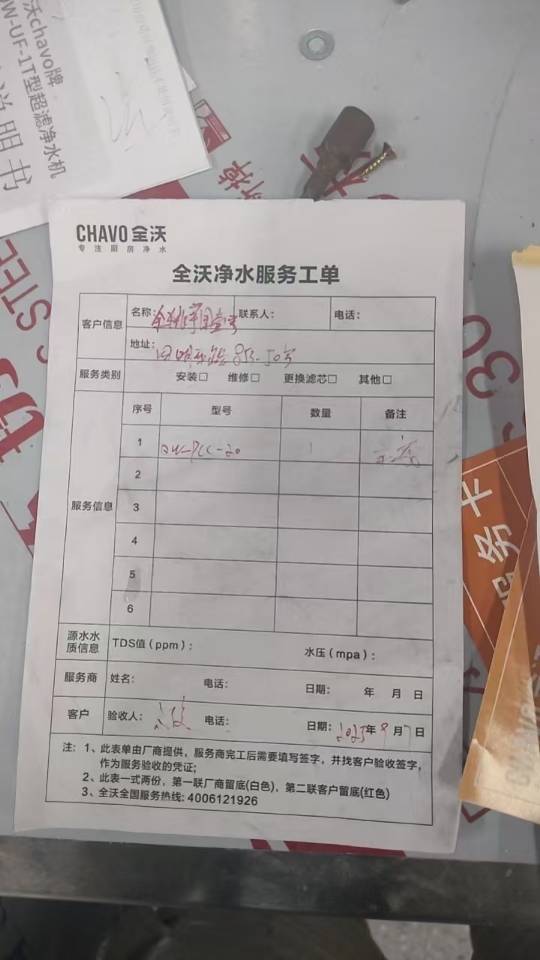 沃chavo牌
W-UF-1T型超滤净水机
说明书
CHAVO 全沃
专注厨房净水
全沃净水服务工单
客户信息
名称:
联系人:
电话:
地址:
服务类别
安装□ 维修□ 更换滤芯□ 其他□
服务信息
序号 型号 数量 备注
1 1
2
3
4
5
6
源水水质信息
TDS值(ppm): 水压(mpa):
服务商 姓名: 电话: 日期: 年 月 日
客户 验收人: 电话: 日期: 2025年9月7日
注: 1、此表单由厂商提供, 服务商完工后需要填写签字, 并找客户验收签字,
作为服务验收的凭证;
2、此表一式两份, 第一联厂商留底(白色), 第二联客户留底(红色)
3、全沃全国服务热线: 4006121926
务卡
CHAVO